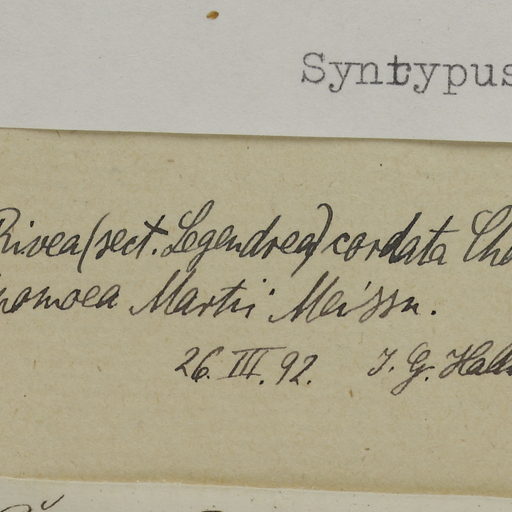 Syntypus
Rivea (sect. Legendrea) cordata Cho
nomoea Martii Meissn.
26. III. 92. J. G. Hall